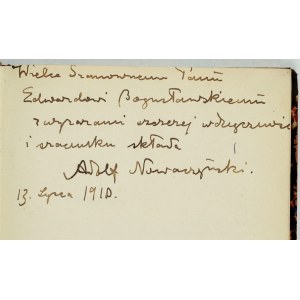 Wielce Szanownemu Panu
Edwardowi Bogusławskiemu
z wyrazami szczerej wdzięczności
i szacunku składa
Adolf Nowaczyński.
13. Lipca 1910.